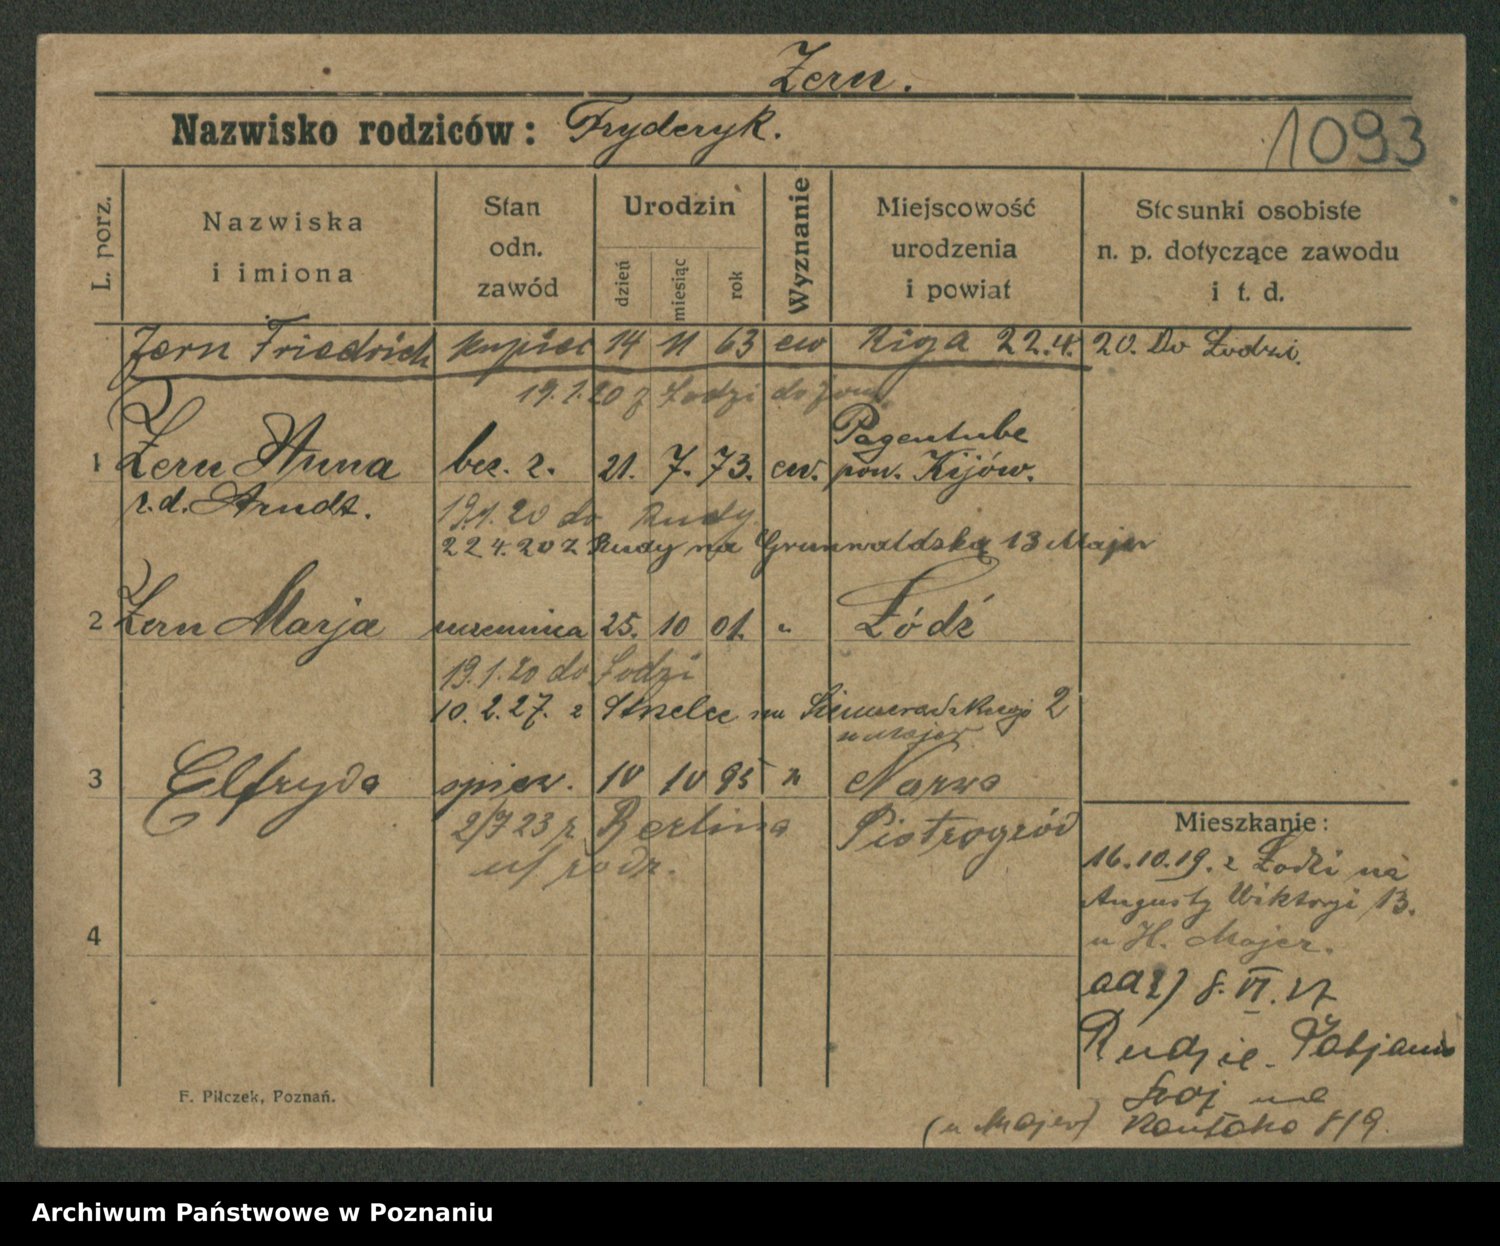 Zern.
Nazwisko rodziców: Fryderyk.
1093
L. porz.
Nazwiska
i imiona
Stan
odn.
zawód
Urodzin
dzień
miesiąc
rok
Wyznanie
Miejscowość
urodzenia
i powiat
Stosunki osobiste
n. p. dotyczące zawodu
i t. d.
Zern Friedrich kupiec 14 11 63 ew Riga 22.4. 20. Do Łodzi.
19.1.20 z Łodzi do
1 Zern Anna bez. z. 21. 7. 73. ew. Pagentube
pow. Kijów.
z.d. Arndt.
19.1.20 do Rudy
22 4. 20 z Rudy na Grunwaldską 13 Majer
2 Zern Marja uczennica 25. 10 01. " Łódź
19.1.20 do Łodzi
10. 2. 27. z Strzelce na Siemieradzkiego 2
u Majer
3 Elfryda śpiew. 10 10 95 " Narwa
2/7 23 z Berlina Piotrogród
u/ rodz.
4
Mieszkanie:
16.10.19. z Łodzi na
Augusty Wiktorji 13.
u H. Majer.
ad 2) 8. VI. 27
Rudzie-Pabjanic
na
(u Majer) 8/9.
F. Pilczek, Poznań.
Archiwum Państwowe w Poznaniu